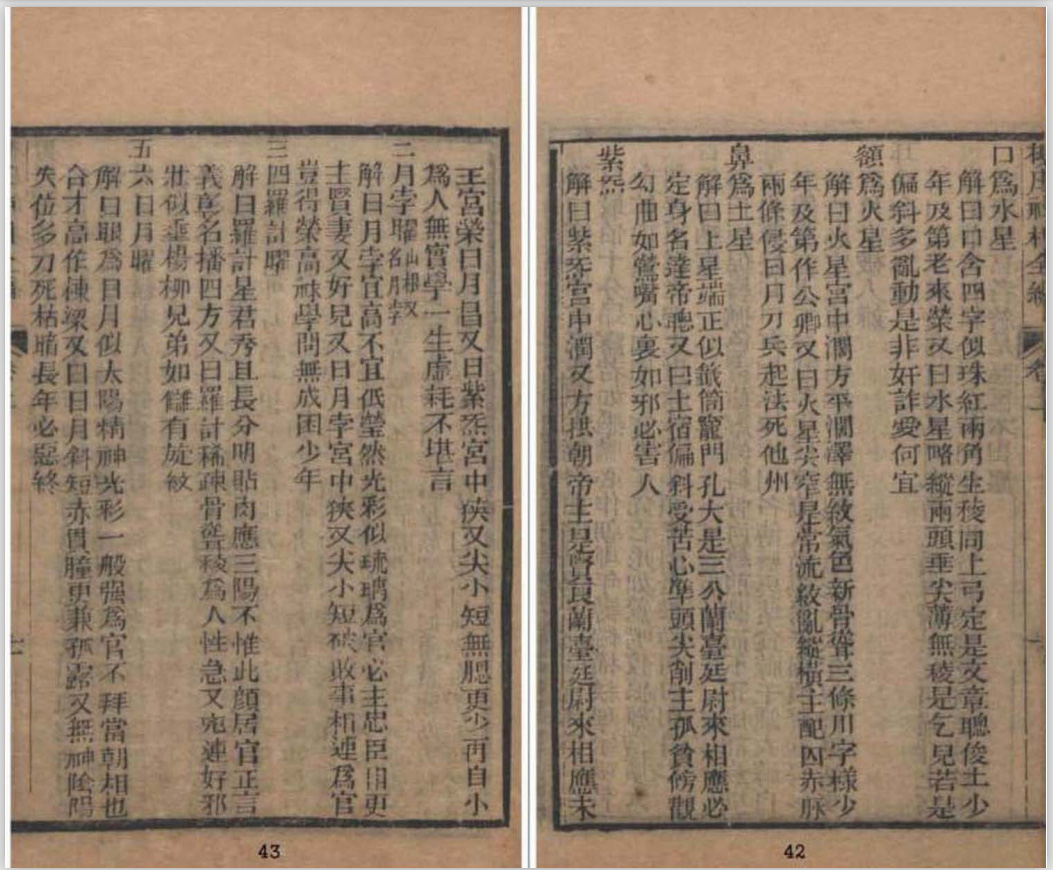 柳庄神相全編 卷上
口爲水星
解曰口含四字似珠紅兩角生稜同上弓定是文章聰俊士少
年及第老來榮又曰水星略縱兩頭垂尖薄無稜是乞兒若是
偏斜多亂動是非奸詐愛何宜
額爲火星
解曰火星宮中濶方平濶澤無紋氣色新骨聳三條川字樣少
年及第作公卿又曰火星尖窄是常流紋亂縱橫主配囚赤脉
兩條侵日月刀兵起法死他州
鼻爲土星
解曰土星端正似截筒竈門孔大是三公蘭臺廷尉來相應必
定身名達帝聰又曰土宿偏斜受苦心準頭尖削主孤貧傍觀
勾曲如鶯嘴心裏如邪必害人
紫炁
解曰紫炁宮中濶又方拱朝帝主是賢良蘭臺廷尉來相應末
42
主宮榮日月昌又曰紫炁宮中狹又尖小短無腮更少 再自小
爲人無官學一生虛耗不堪言
二月孛曜 山根又名月孛
解曰月孛宜高不宜低瑩然光彩似琉璃爲官必主忠臣 更
主賢妻又好兒又曰月孛宮中狹又尖小短破敗事相連爲官
豈得榮高祿學問無成困少年
三四羅計曜
解曰羅計星君秀且長分明貼肉應三陽不惟此顔居官正言
義名播四方又曰羅計稀疎骨聳稜爲人性急又 連好邪
壯似垂楊柳兄弟如 有旋紋
五六日月曜
解曰眼爲日月似太陽精神光彩一般强爲官不拜當朝相也
合才高作棟梁又曰日月斜短赤貫瞳更兼孤露又無神陰陽
失位多刀死枯暗長年必惡終
43